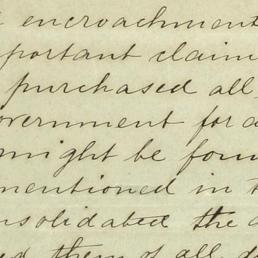 encroachment
portant claim
purchased all,
vernment for a
might be foun
mentioned in t
nsolidated the
ed them of all, d